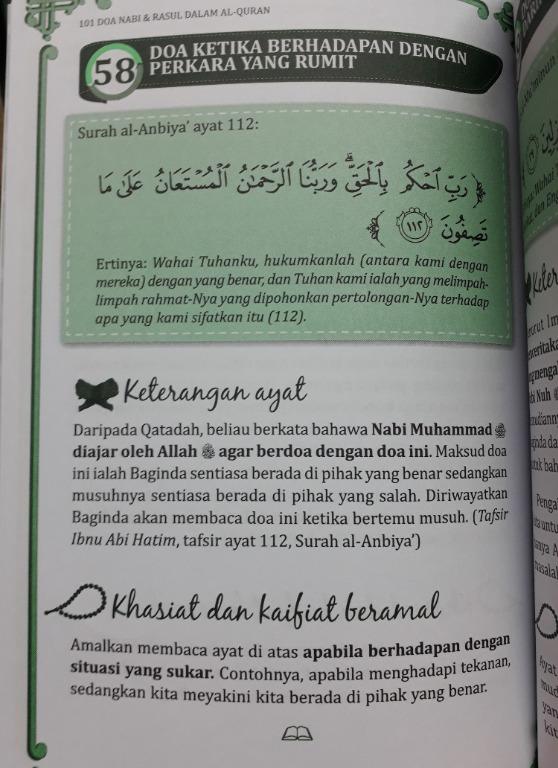 101 DOA NABI & RASUL DALAM AL-QURAN
58
DOA KETIKA BERHADAPAN DENGAN
PERKARA YANG RUMIT
Surah al-Anbiya’ ayat 112:
﴿ رَبِّ ٱحْكُم بِٱلْحَقِّ ۗ وَرَبُّنَا ٱلرَّحْمَـٰنُ ٱلْمُسْتَعَانُ عَلَىٰ مَا
تَصِفُونَ ١١٢ ﴾
Ertinya: Wahai Tuhanku, hukumkanlah (antara kami dengan
mereka) dengan yang benar, dan Tuhan kami ialah yang melimpah-
limpah rahmat-Nya yang dipohonkan pertolongan-Nya terhadap
apa yang kami sifatkan itu (112).
Keterangan ayat
Daripada Qatadah, beliau berkata bahawa Nabi Muhammad ﷺ
diajar oleh Allah ﷻ agar berdoa dengan doa ini. Maksud doa
ini ialah Baginda sentiasa berada di pihak yang benar sedangkan
musuhnya sentiasa berada di pihak yang salah. Diriwayatkan
Baginda akan membaca doa ini ketika bertemu musuh. (Tafsir
Ibnu Abi Hatim, tafsir ayat 112, Surah al-Anbiya’)
Khasiat dan kaifiat beramal
Amalkan membaca ayat di atas apabila berhadapan dengan
situasi yang sukar. Contohnya, apabila menghadapi tekanan,
sedangkan kita meyakini kita berada di pihak yang benar.